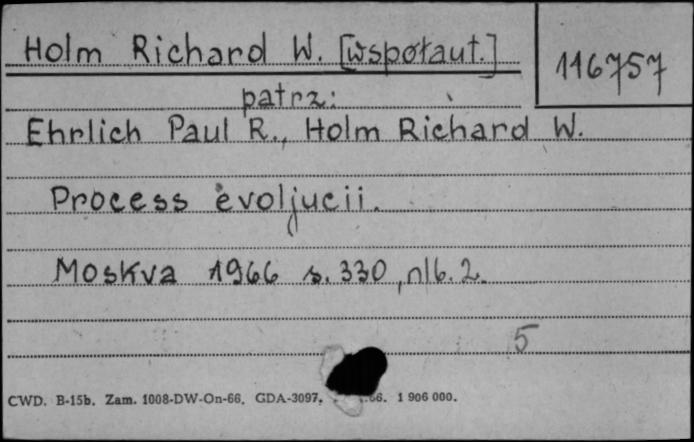 Holm Richard W. [współaut.]
116757
patrz:
Ehrlich Paul R., Holm Richard W.
Process èvoljucii.
Moskva 1966 s. 330, nlb. 2.
5
CWD. B-15b. Zam. 1008-DW-On-66. GDA-3097. .66. 1 906 000.